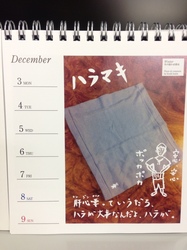 December
ハラマキ
3 MON
4 TUE
5 WED
6 THU
7 FRI
8 SAT
9 SUN
ポッカポカ
安心
安心
肝心要っていうだろ、
ハラが大事なんだよ、ハラが。